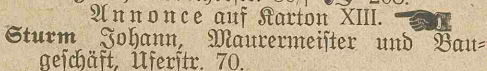 Annonce auf Karton XIII.
Sturm Johann, Maurermeister und Bau=
geschäft, Uferstr. 70.